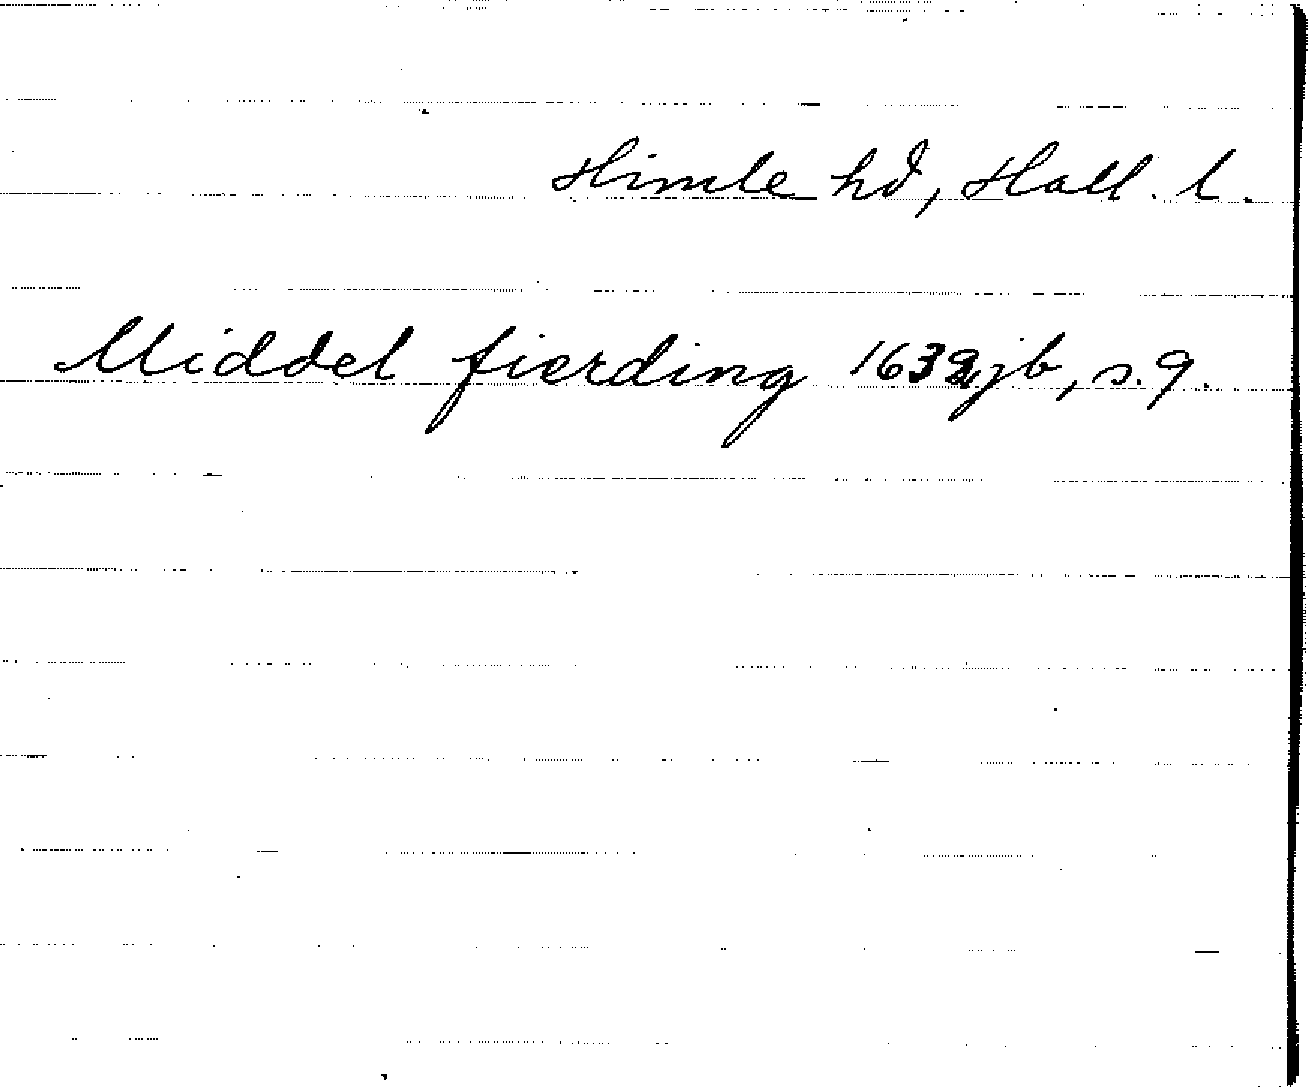 Himle hd, Hall. l.
Middel fierding 1632 jb, s. 9.